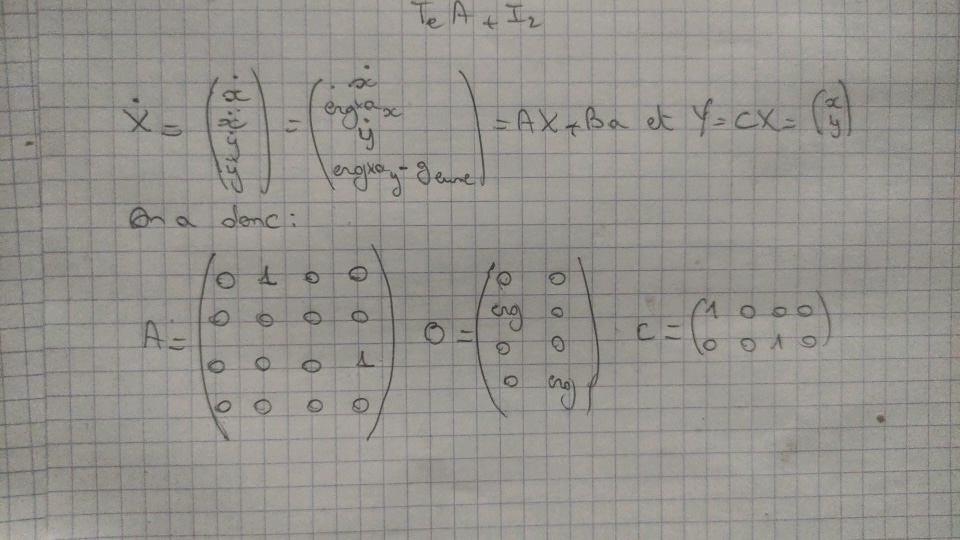 TeA + I₂
Ẋ = (ẋ ẍ ẏ ÿ) = (ẋ erg×aₓ ẏ erg×a_y - g lune) = AX + Ba et Y = CX = (x y)
On a donc :
A = (0 1 0 0
0 0 0 0
0 0 0 1
0 0 0 0)
B = (0 0
erg 0
0 0
0 erg)
C = (1 0 0 0
0 0 1 0)